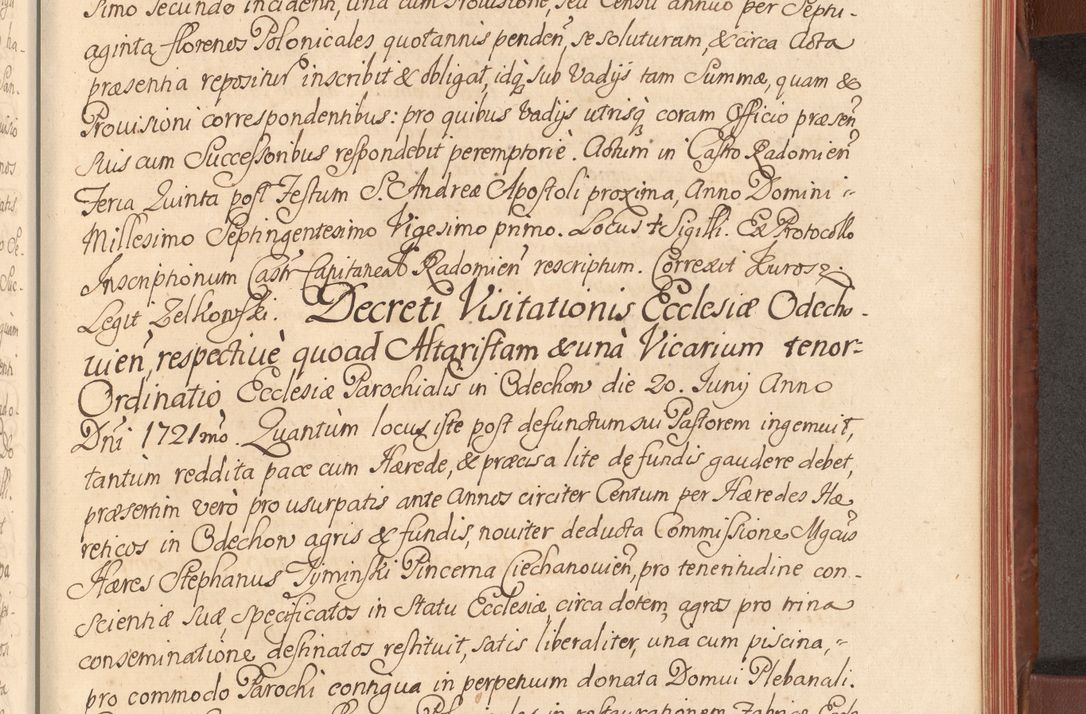 simo secundo incidenti, una cum Provisione, seu Censu annuo per Septu-
aginta florenos Polonicales quotannis penden, se soluturam, & circa Acta
præsentia repositur inscribit & obligat, idq sub Vadijs tam Summæ, quam &
Provisioni correspondentibus: pro quibus Vadijs utrisq coram Officio præsen
suis cum Successoribus respondebit peremptoriè. Actum in Castro Radomien
Feria Quinta post Festum S. Andreæ Apostoli proxima, Anno Domini
Millesimo Septingentesimo Vigesimo primo. Locus † Sigilli. Ex Protocollo
Inscriptionum Castr Capitaneal Radomien rescriptum. Correxit Kurosz
Legit Zelkowski. Decreti Visitationis Ecclesiæ Odecho-
vien, respectivè quoad Altaristam & unà Vicarium tenor:
Ordinatio Ecclesiæ Parochialis in Odechow die 20. Iunij Anno
Dni 1721mo. Quantùm locus iste post defunctum sui Pastorem ingemuit,
tantùm reddita pace cum Hærede, & præcisa lite de fundis gaudere debet,
præsertim verò pro usurpatis ante Annos circiter Centum per Hæredes Hæ
reticos in Odechow agris & fundis, noviter deducta Commissione Mgcus
Hæres Stephanus Tyminski Pincerna Ciechanovien, pro teneritudine con-
scientiæ suæ, specificatos in Statu Ecclesiæ, circa dotem, agros pro trina
conseminatione destinatos restituit, satis liberaliter, una cum piscina,
pro commodo Parochi contigua in perpetuum donata Domui Plebanali.
in restaurationem Fabricæ Eccle